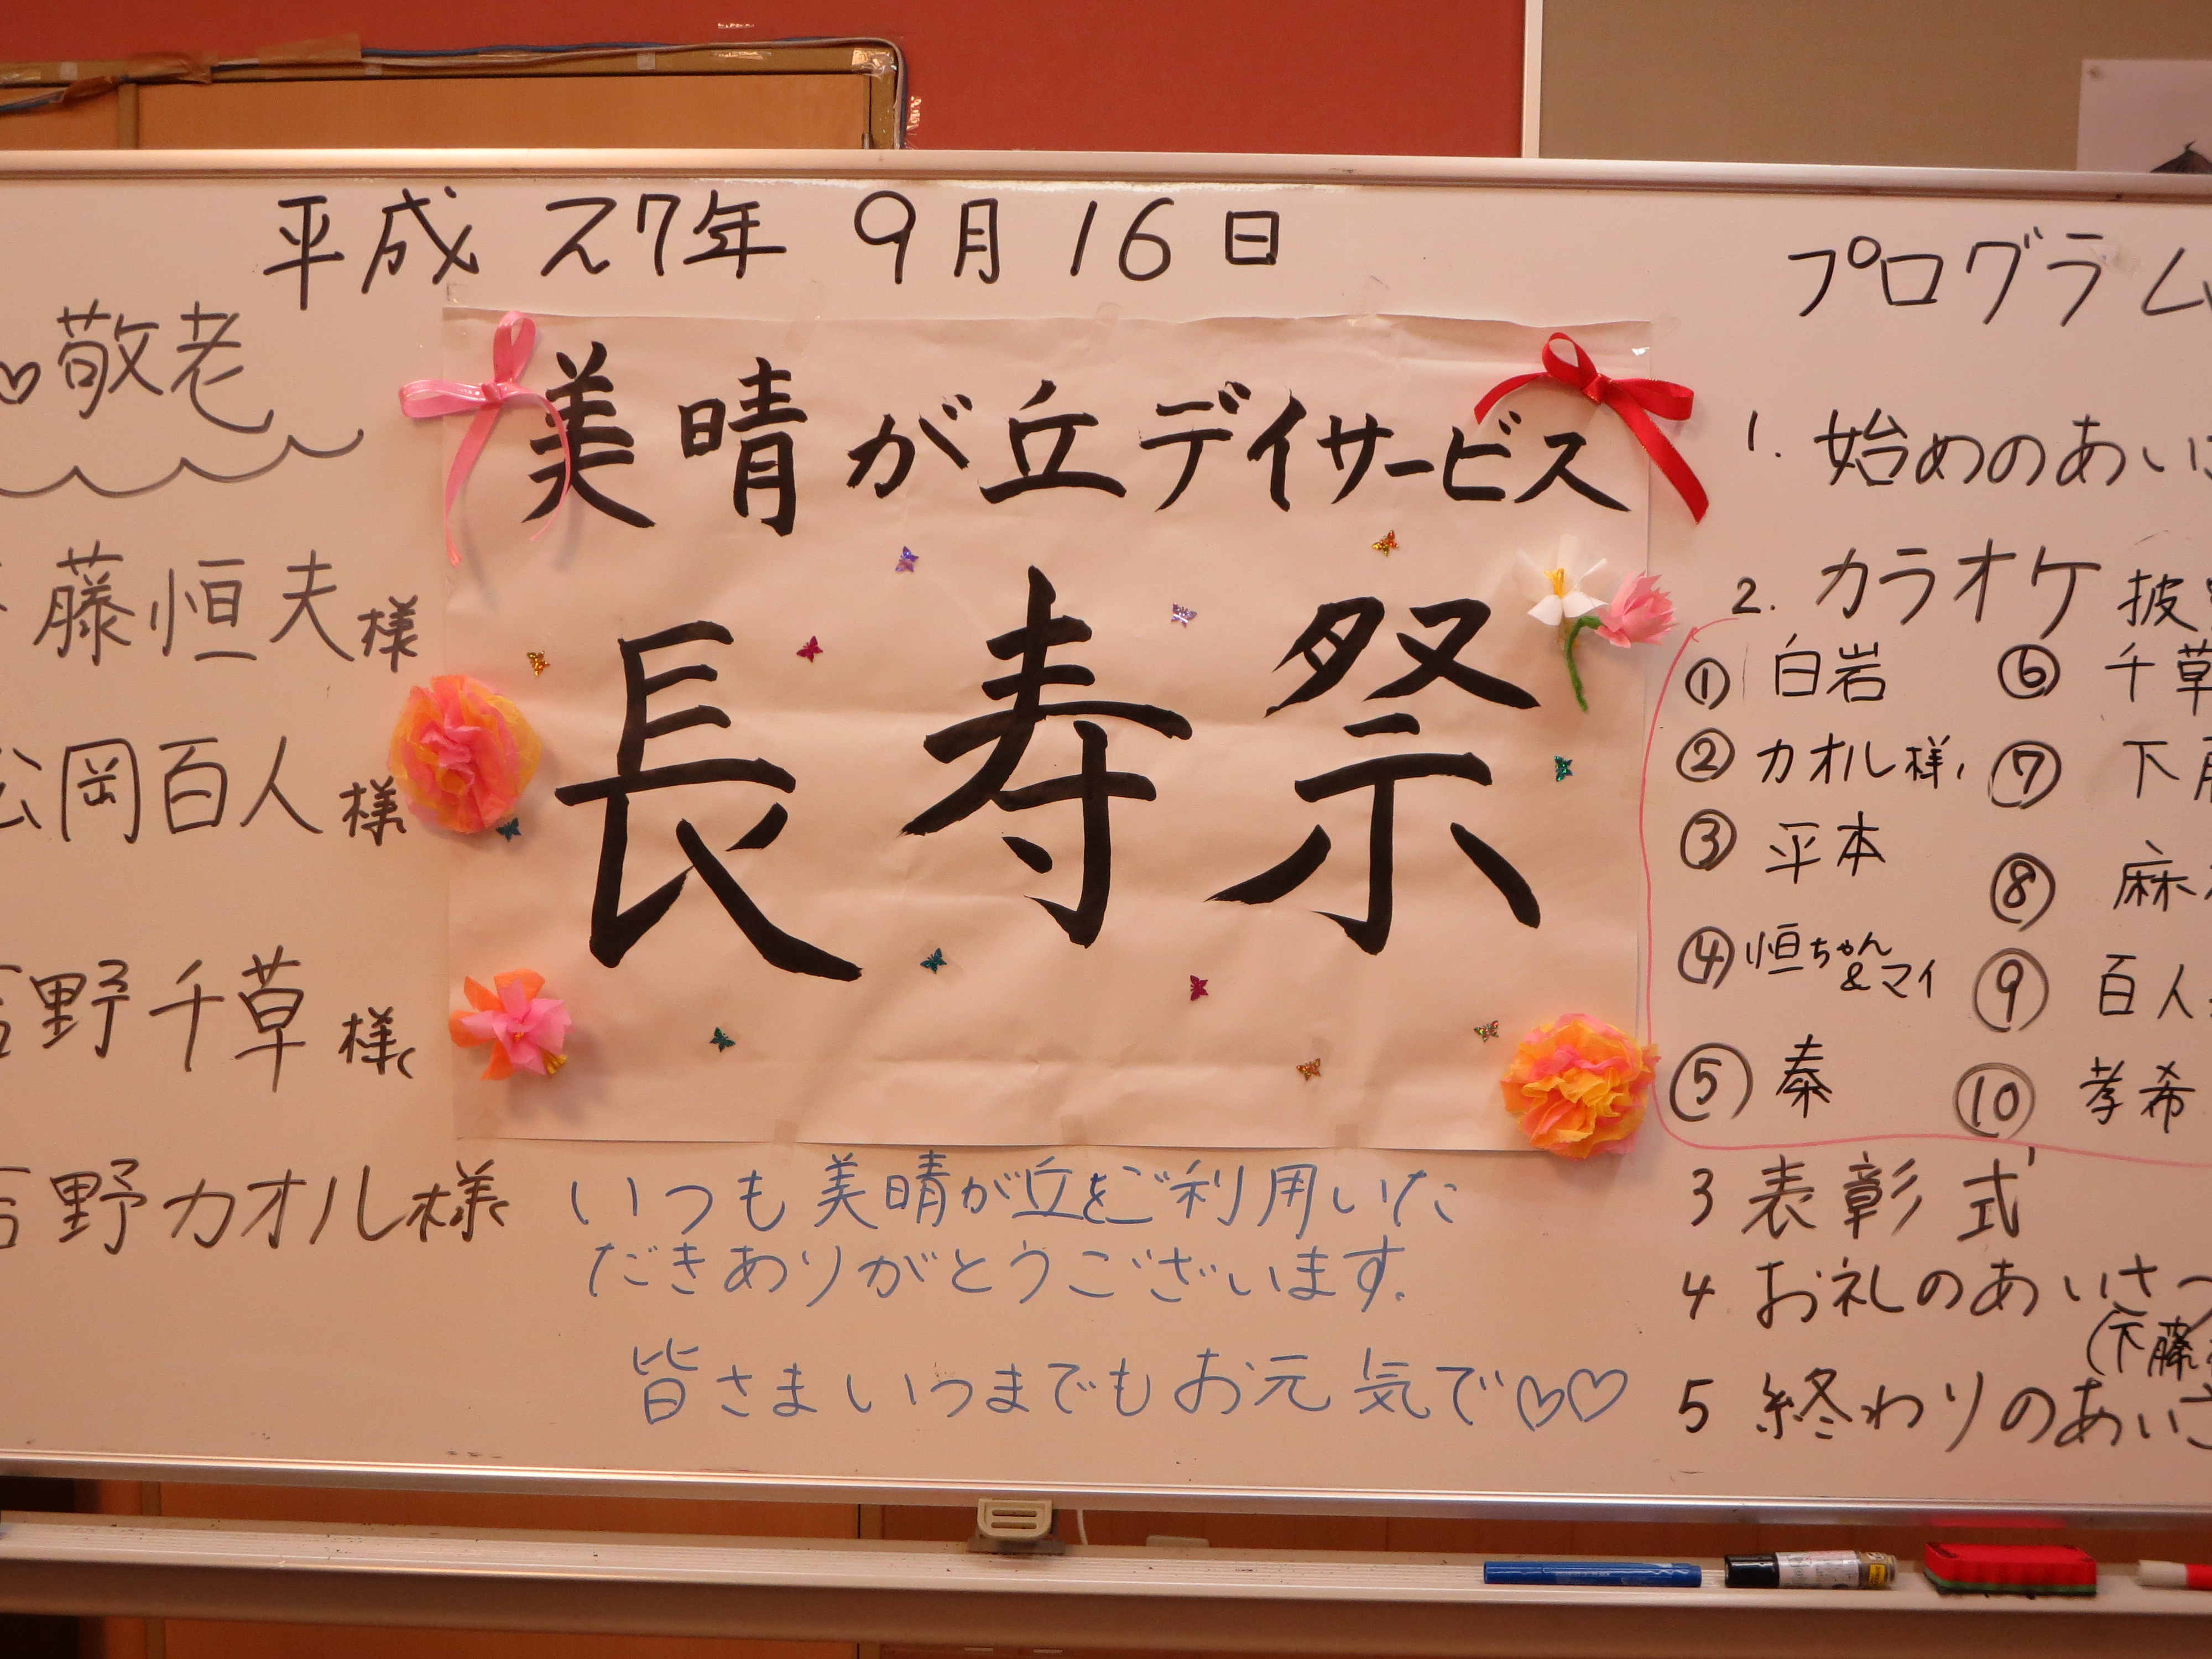 平成27年 9月16日
♡敬老
藤恒夫様
松岡百人様
野千草様
野カオル様
美晴が丘デイサービス
長寿祭
いつも美晴が丘をご利用いた
だきありがとうございます。
皆さまいつまでもお元気で♡♡
プログラム
1. 始めのあい
2. カラオケ 披
① 白岩
② カオル様
③ 平本
④ 恒ちゃん
&マイ
⑤ 秦
⑥ 千草
⑦ 下
⑧ 麻
⑨ 百人
⑩ 孝希
3 表彰式
4 お礼のあいさつ
(下藤
5 終わりのあいさ